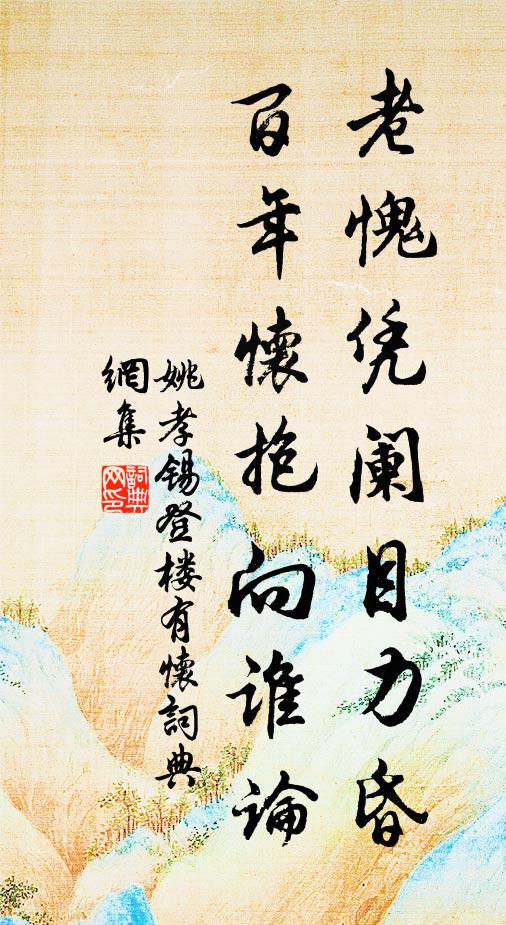 老愧凭阑目力昏
百年懷抱向谁論
姚孝锡登楼有懷詞典
網集
詞典
网印